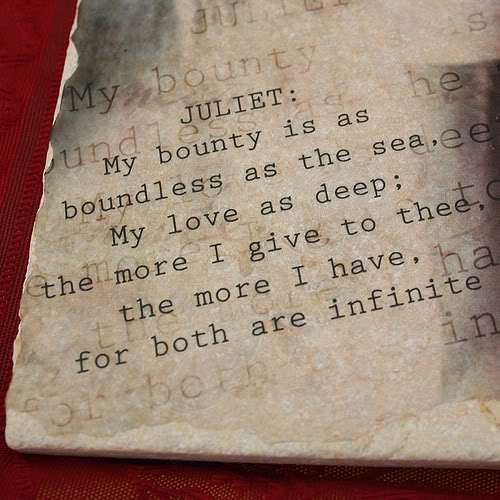 JULIET:
My bounty is as
boundless as the sea,
My love as deep;
the more I give to thee,
the more I have,
for both are infinite